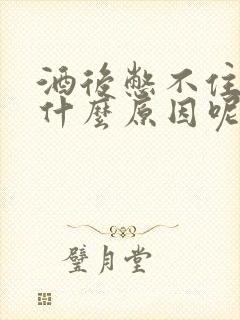 酒後憋不住
什麼原因呢
璧月堂